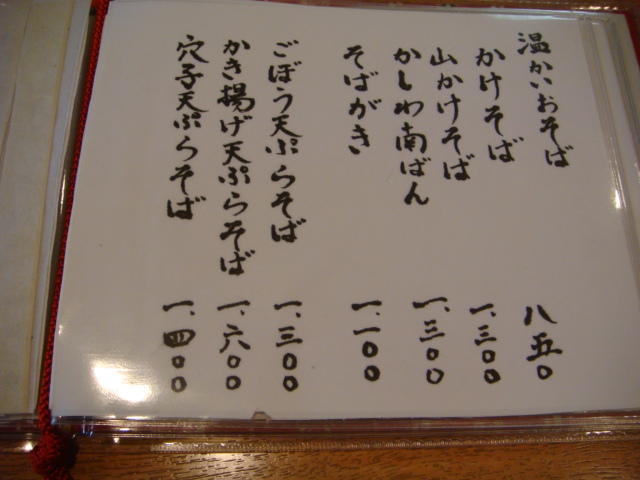 温かいおそば
かけそば 八五〇
山かけそば 一、三〇〇
かしわ南ばん 一、三〇〇
そばがき 一、一〇〇
ごぼう天ぷらそば 一、三〇〇
かき揚げ天ぷらそば 一、六〇〇
穴子天ぷらそば 一、四〇〇